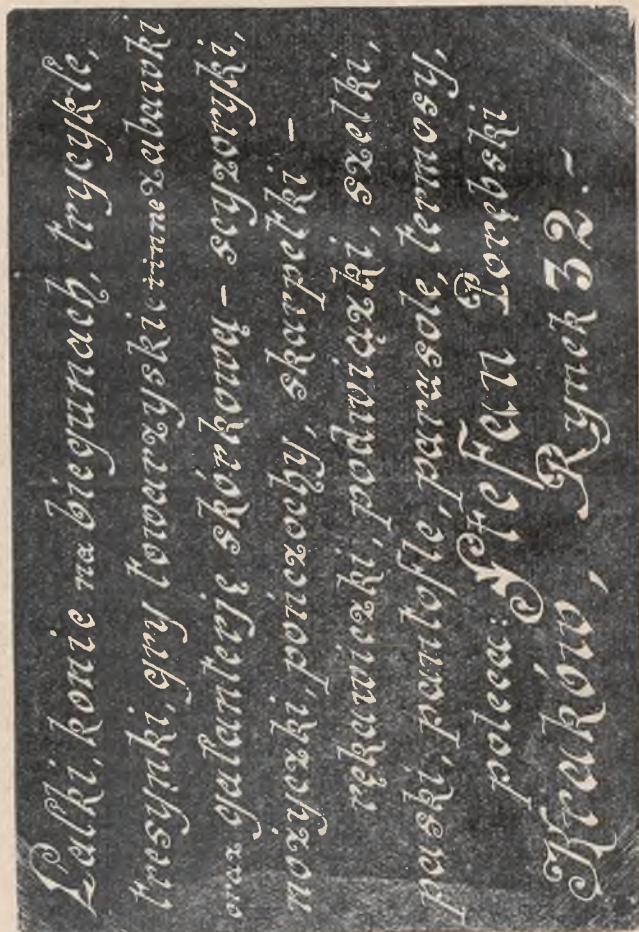 Lalki, konie na biegunach, trycykle,
tresynki, gry towarzyskie i inne zabawki
oraz galanterję skórkową – scyzoryki,
nożyczki, pończochy, skarpetki –
rękawiczki, podwiązki, szelki,
paski, pantofle, parasole, termosy,
poleca: Stefan Porębski
Kraków, Rynek 32.–